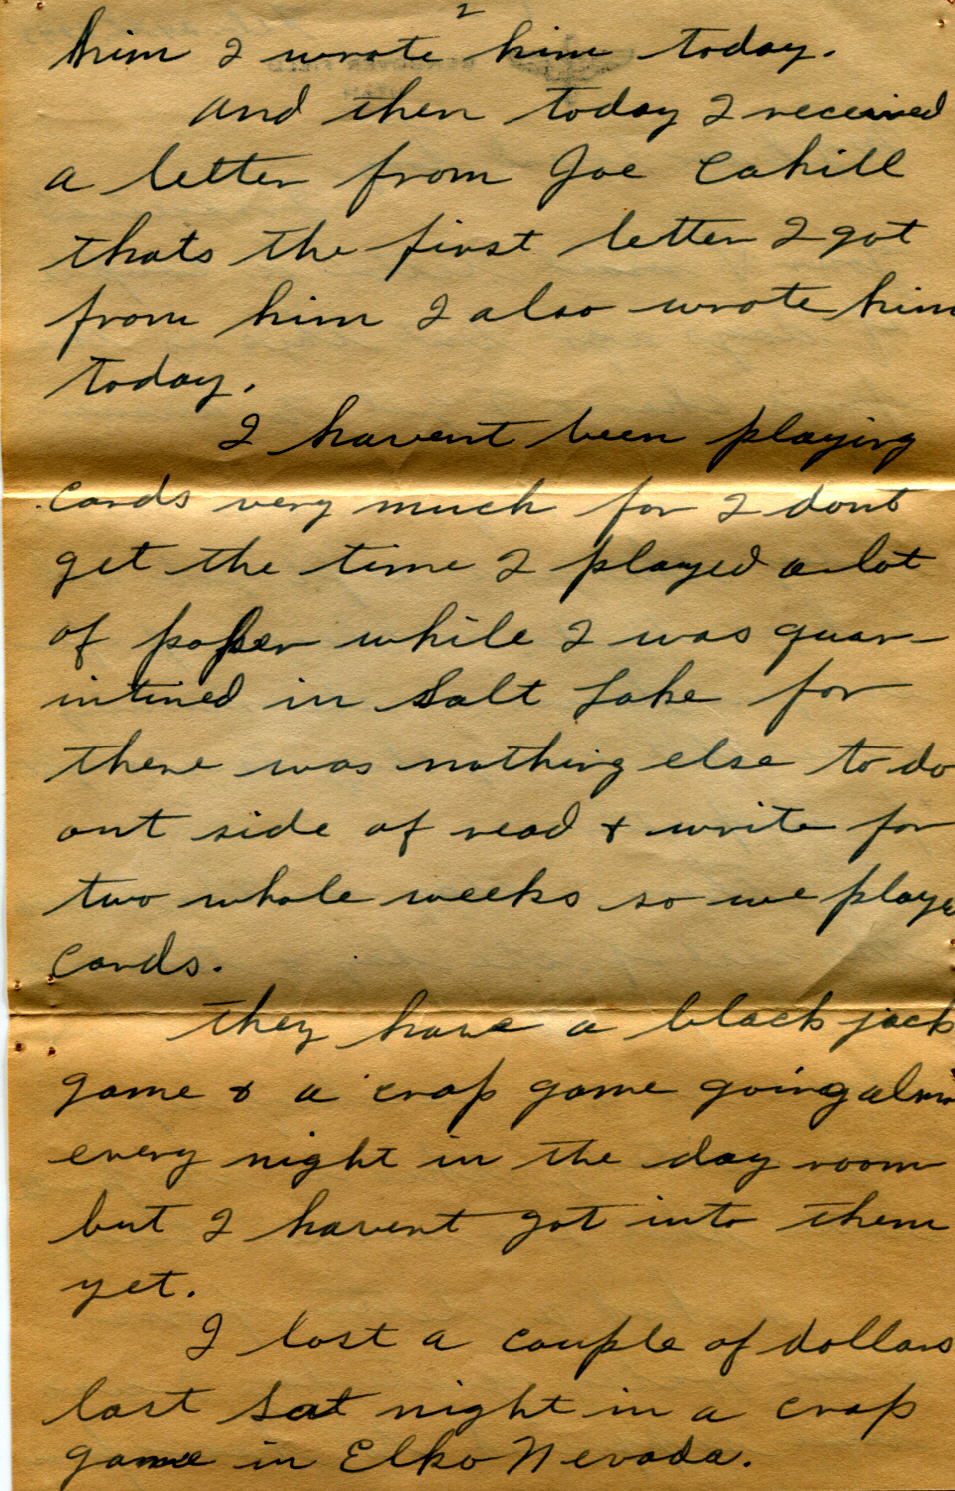 2
him I wrote him today.
and then today I received
a letter from Joe Cahill
thats the first letter I got
from him I also wrote him
today.
I havent been playing
cards very much for I dont
get the time I played a lot
of poker while I was quar-
intined in Salt Lake for
there was nothing else to do
out side of read + write for
two whole weeks so we playe
cards.
they have a black jack
game & a crap game going alm
every night in the day room
but I havent got into them
yet.
I lost a couple of dollars
last Sat night in a crap
game in Elko Nevada.